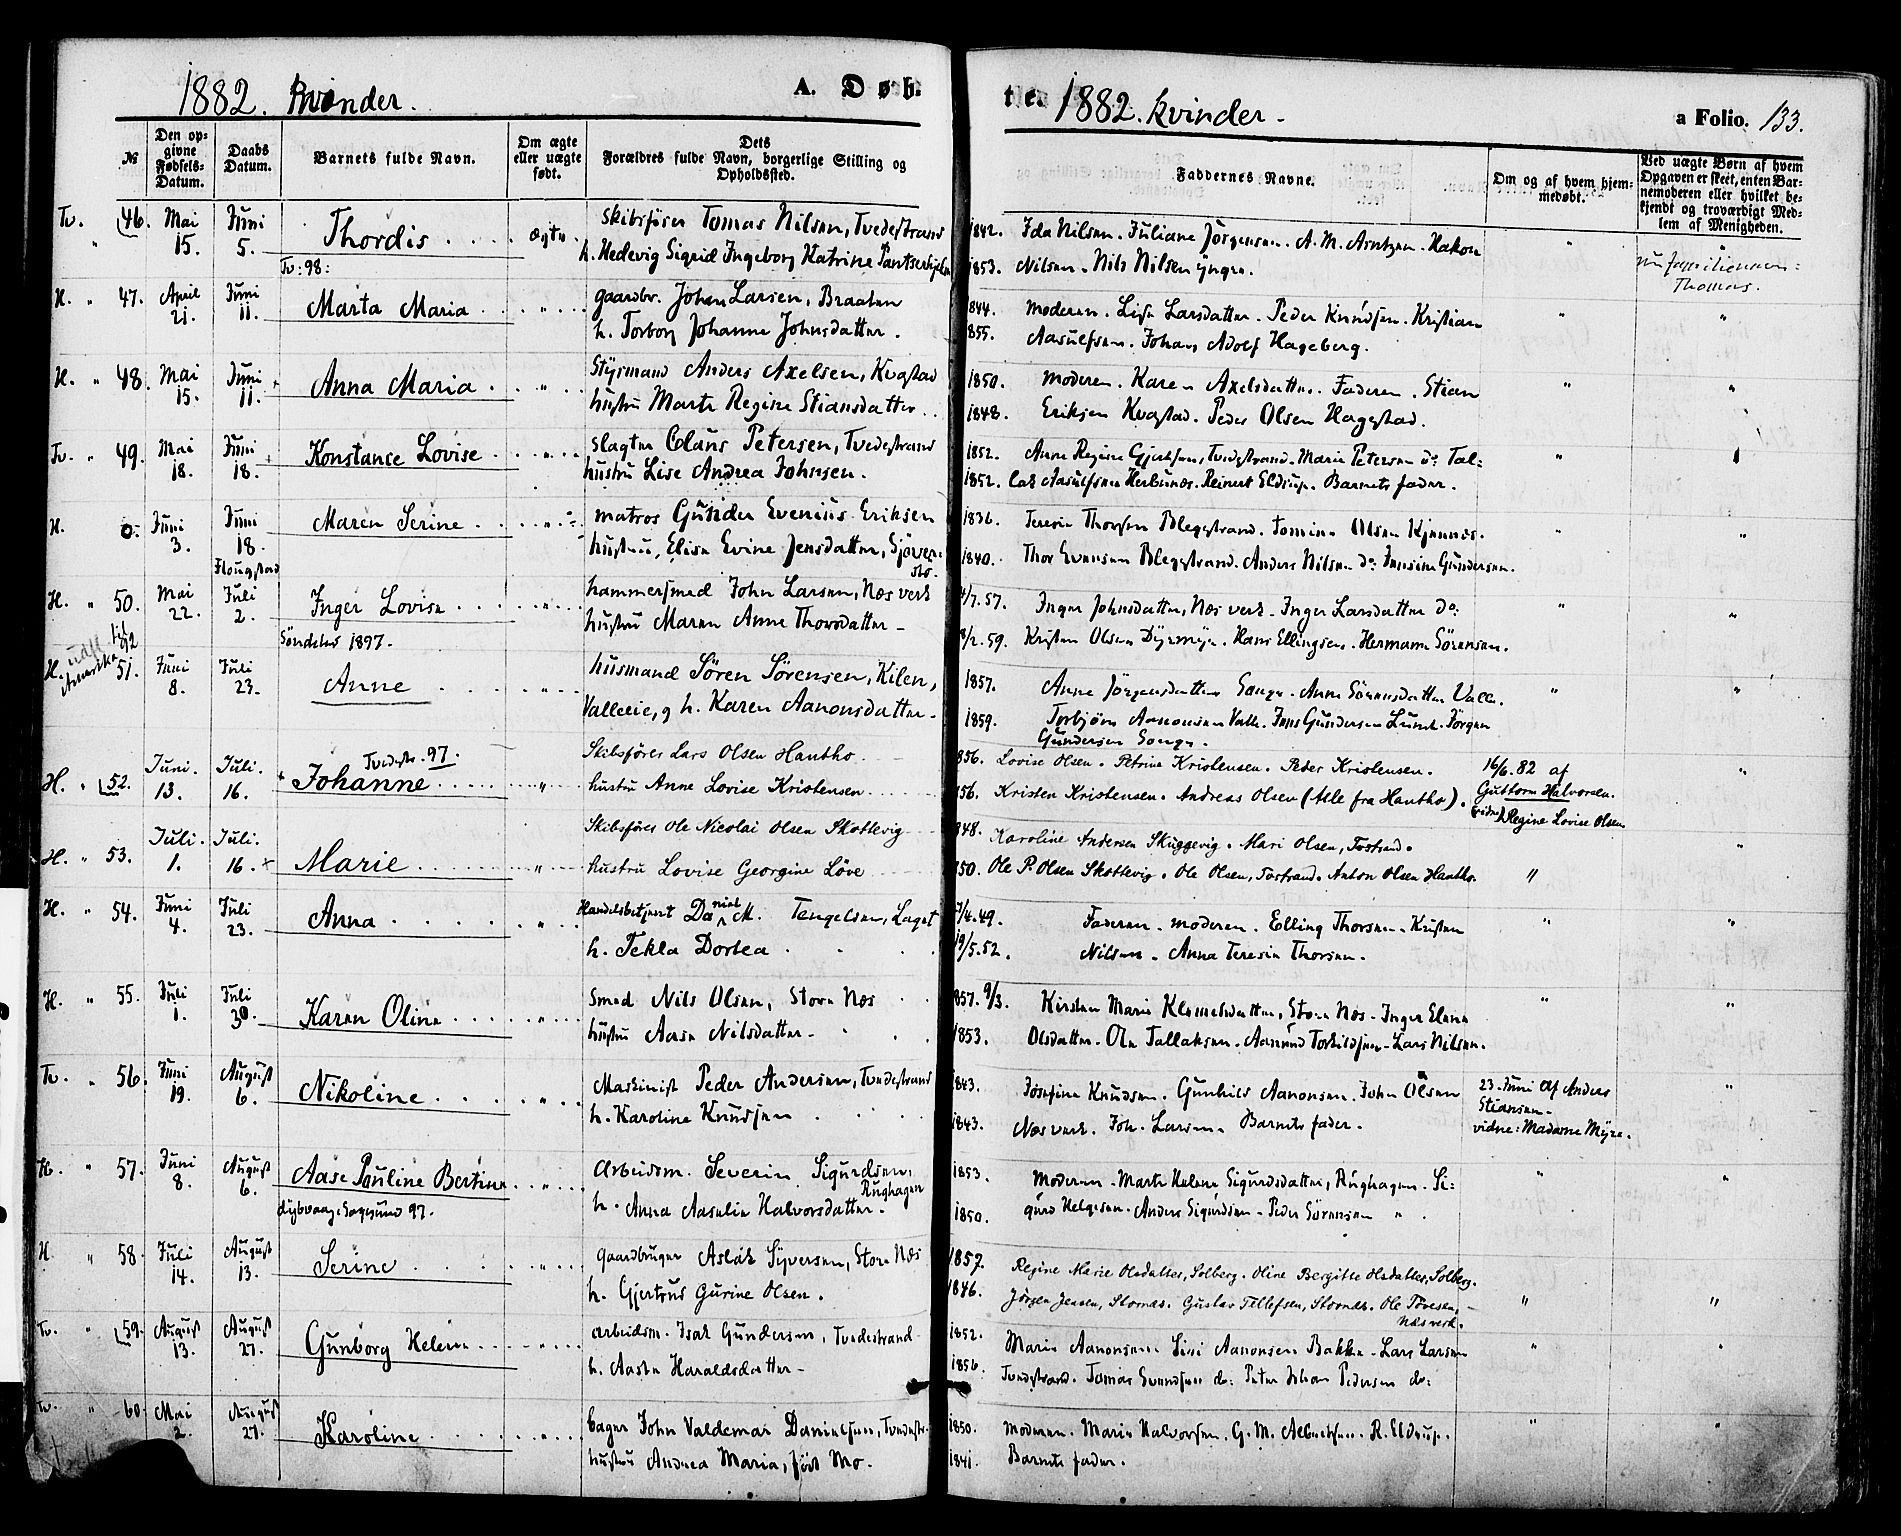 1882. Kvinder. A. Døb-
№
Den opgivne Fødsels-Datum.
Daabs Datum.
Barnets fulde Navn.
Om ægte eller uægte født.
Dets Forældres fulde Navn, borgerlige Stilling og Opholdssted.
Tv. " 46. Mai 15. Juni 5. Thordis ægte Skibsfører Tomas Nilsen, Tvedestrand
h. Hedevig Sigrid Ingeborg Katrine
Tv: 98:
H. " 47. April 21. Juni 11. Marta Maria " gaardbr. Johan Larsen, Braaten
h. Torborg Johanne Johnsdatter.
H. " 48. Mai 15. Juni 11. Anna Maria " Styrmand Anders Axelsen, Kvastad
hustru Marte Regine Stiansdatter.
Tv. " 49. Mai 18. Juni 18. Konstance Lovise " slagter Claus Petersen, Tvedestrand
hustru Lise Andrea Johnsen.
H. 0. Juni 3. Juni 18. Maren Serine " matros Gunder Evenius Eriksen
hustru, Elise Evine Jensdatter,
Flougstad
H. " 50. Mai 22. Juli 2. Inger Lovise " hammersmed John Larsen, Næs verk
hustru Maren Anne Thorsdatter -
Søndeled 1897.
udfl. til Amerika 92
H. 51. Juni 8. Juli 23. Anne " husmand Sören Sörensen, Kilen,
Valleeie, og h. Karen Aanonsdatter.
Tvedestr. 97.
H. " 52. Juni. 13. Juli. 16. Johanne " Skibsfører Lars Olsen Hantho
hustru Anne Lovise Kristensen
H. " 53. Juli. 1. Juli. 16. Marie " Skibsfører Ole Nicolai Olsen Skottevig
hustru Lovise Georgine Löve
H. " 54. Juni 4. Juli 23. Anna " Handelsbetjent Daniel M. Tengelsen, Laget
h. Tekla Dortea
H. " 55. Juli 1. Juli 30. Karen Oline " Smed Nils Olsen, Store Næs
hustru Aase Nilsdatter -
Tv. " 56. Juni 19. August 6. Nikoline " Maskinist Peder Andersen, Tvedestrand
h. Karoline Knudsen
H. " 57. Juni 8. August 6. Aase Pauline Bertine " Arbeidsm. Severin Sigurdsen,
Rughagen
h. Anna Aaselie Halvorsdatter.
dybvaag. Sagesund 97.
H. " 58. Juli 14. August 13. Serine " gaardbruger Aslak Syversen, Store Næs
h. Gjertrud Gurine Olsen.
Tv. " 59. August 13. August 27. Gunborg Helene " arbeidsm. Isak Gundersen, Tvedestrand
h. Aaste Haraldsdatter -
Tv. " 60. Mai 2. August 27. Karoline " bager John Valdemar Danielsen, Tvedestr.
hustru Andrea Maria, født Mo.
te. 1882. kvinder - a Folio. 133.
Faddernes Navne.
Om og af hvem hjemmedøbt.
Ved uægte Børn af hvem Opgaven er skeet, enten Barnemoderen eller hvilket bekjendt og troværdigt Medlem af Menigheden.
1842. Ida Nilsen. Juliane Jörgensen. A. M. Arntzen. Hakon
1853. Nilsen. Nils Nilsen yngre.
Thomas.
844. moderen. Lise Larsdatter. Peder Knudsen. Kristian
855. Aasulfsen. Johan Adolf Hageberg.
1850. moderen. Karen Axelsdatter. Faderen. Stian
1848. Eriksen Kvastad. Peder Olsen Hagestad.
1852. Anne Regine Gjertsen, Tvedestrand. Marie Petersen do Tal=
1852. lak Aasulfsen Herbunæs. Reinert Eldrup. Barnets fader.
1836. Teresie Thorsen Bleggestrand. Tomine Olsen Kjennæs.
1840. Thor Evensen Bleggestrand. Anders Nilsen do Gundersen.
4/7. 57. Inger Johnsdatter, Næs verk. Inger Larsdatter do:
8/2. 59. Kristen Olsen Dyrmyr. Hans Ellingsen. Hermann Sörensen.
1857. Anne Jörgensdatter Songe. Anne Sörensdatter Valle.
1859. Torbjörn Aanonsen Valle. Jens Gundersen Lunde. Jörgen
Gundersen Songe.
856. Lovise Olsen. Petrine Kristensen. Peder Kristensen. 16/6. 82 af
Guttorm Halvorsen.
856. Kristen Kristensen. Andreas Olsen (Alle fra Hantho).
(vidne) Regine Lovise Olsen
848. Karoline Andersen Skuggevig. Mari Olsen, Tostrand.
850. Ole P. Olsen Skottevig. Ole Olsen, Tostrand. Anton Olsen Hantho. "
7/4. 49. Faderen. moderen. Elling Thorsen. Kristen
19/5. 52. Nilsen. Anna Teresie Thorsen.
857. 9/3. Kirsten Marie Klemetsdatter, Store Næs. Inger Elene
1853. Olsdatter. Ole Tallaksen. Aanund Torkildsen. Lars Nilsen.
1843. Josefine Knudsen. Gunhild Aanonsen. John Olsen 23. Juni af Anders
Stiansen.
1843. Næs verk. Joh. Larsen. Barnets fader. vidne: Madame Myre.
1853. Moderen. Marte Helene Sigurdsdatter, Rughagen. Si=
1850. gurd Helgesen. Anders Sigurdsen. Peder Sörensen "
1857. Regine Marie Olsdatter, Solberg. Oline Bergitte Olsdatter, Solberg.
1846. Jörgen Jensen, Stornæs. Gustav Tellefsen, Stornæs. Ole Tovesen,
Næsverk.
1852. Marie Aanonsen. Sini Aanonsen Bakke. Lars Larsen
1856. Tvedestrand. Tomas Evendsen do: Peter Johan Pedersen do:
1850. moderen. Marie Halvorsen. G. M. Albertsen. R. Eldrup.
1841. Barnets fader.